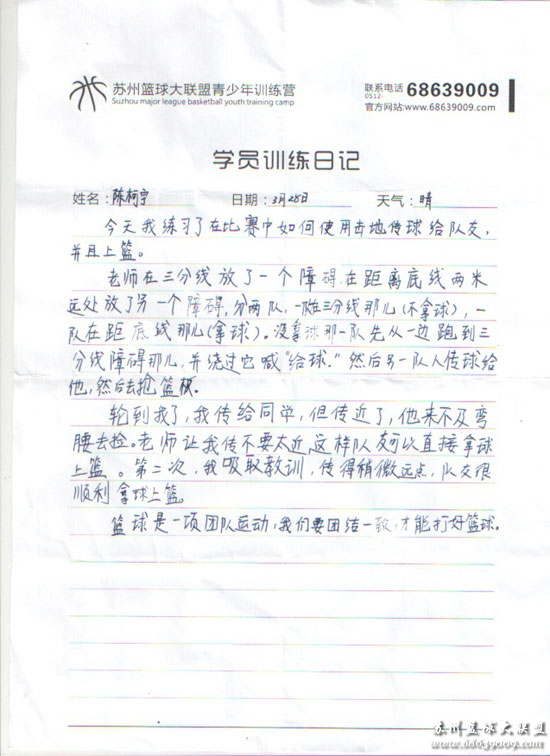 苏州篮球大联盟青少年训练营
Suzhou major league basketball youth training camp
联系电话 0512- 68639009
官方网站:www.68639009.com
学员训练日记
姓名:陈柯宁 日期:3月28日 天气:晴
今天我练习了在比赛中如何使用击地传球给队友,
并且上篮。
老师在三分线放了一个障碍,在距离底线两米
远处放了另一个障碍,分两队,一队在三分线那儿(不拿球),一
队在距底线那儿(拿球)。没拿球那一队先从一边跑到三
分线障碍那儿,并绕过它喊“给球!”然后另一队人传球给
他,然后去抢篮板。
轮到我了,我传给同学,但传近了,他来不及弯
腰去捡。老师让我传不要太近,这样队友可以直接拿球
上篮。第二次,我吸取教训,传得稍微远点,队友很
顺利拿球上篮。
篮球是一项团队运动,我们要团结一致,才能打好篮球。
苏州篮球大联盟